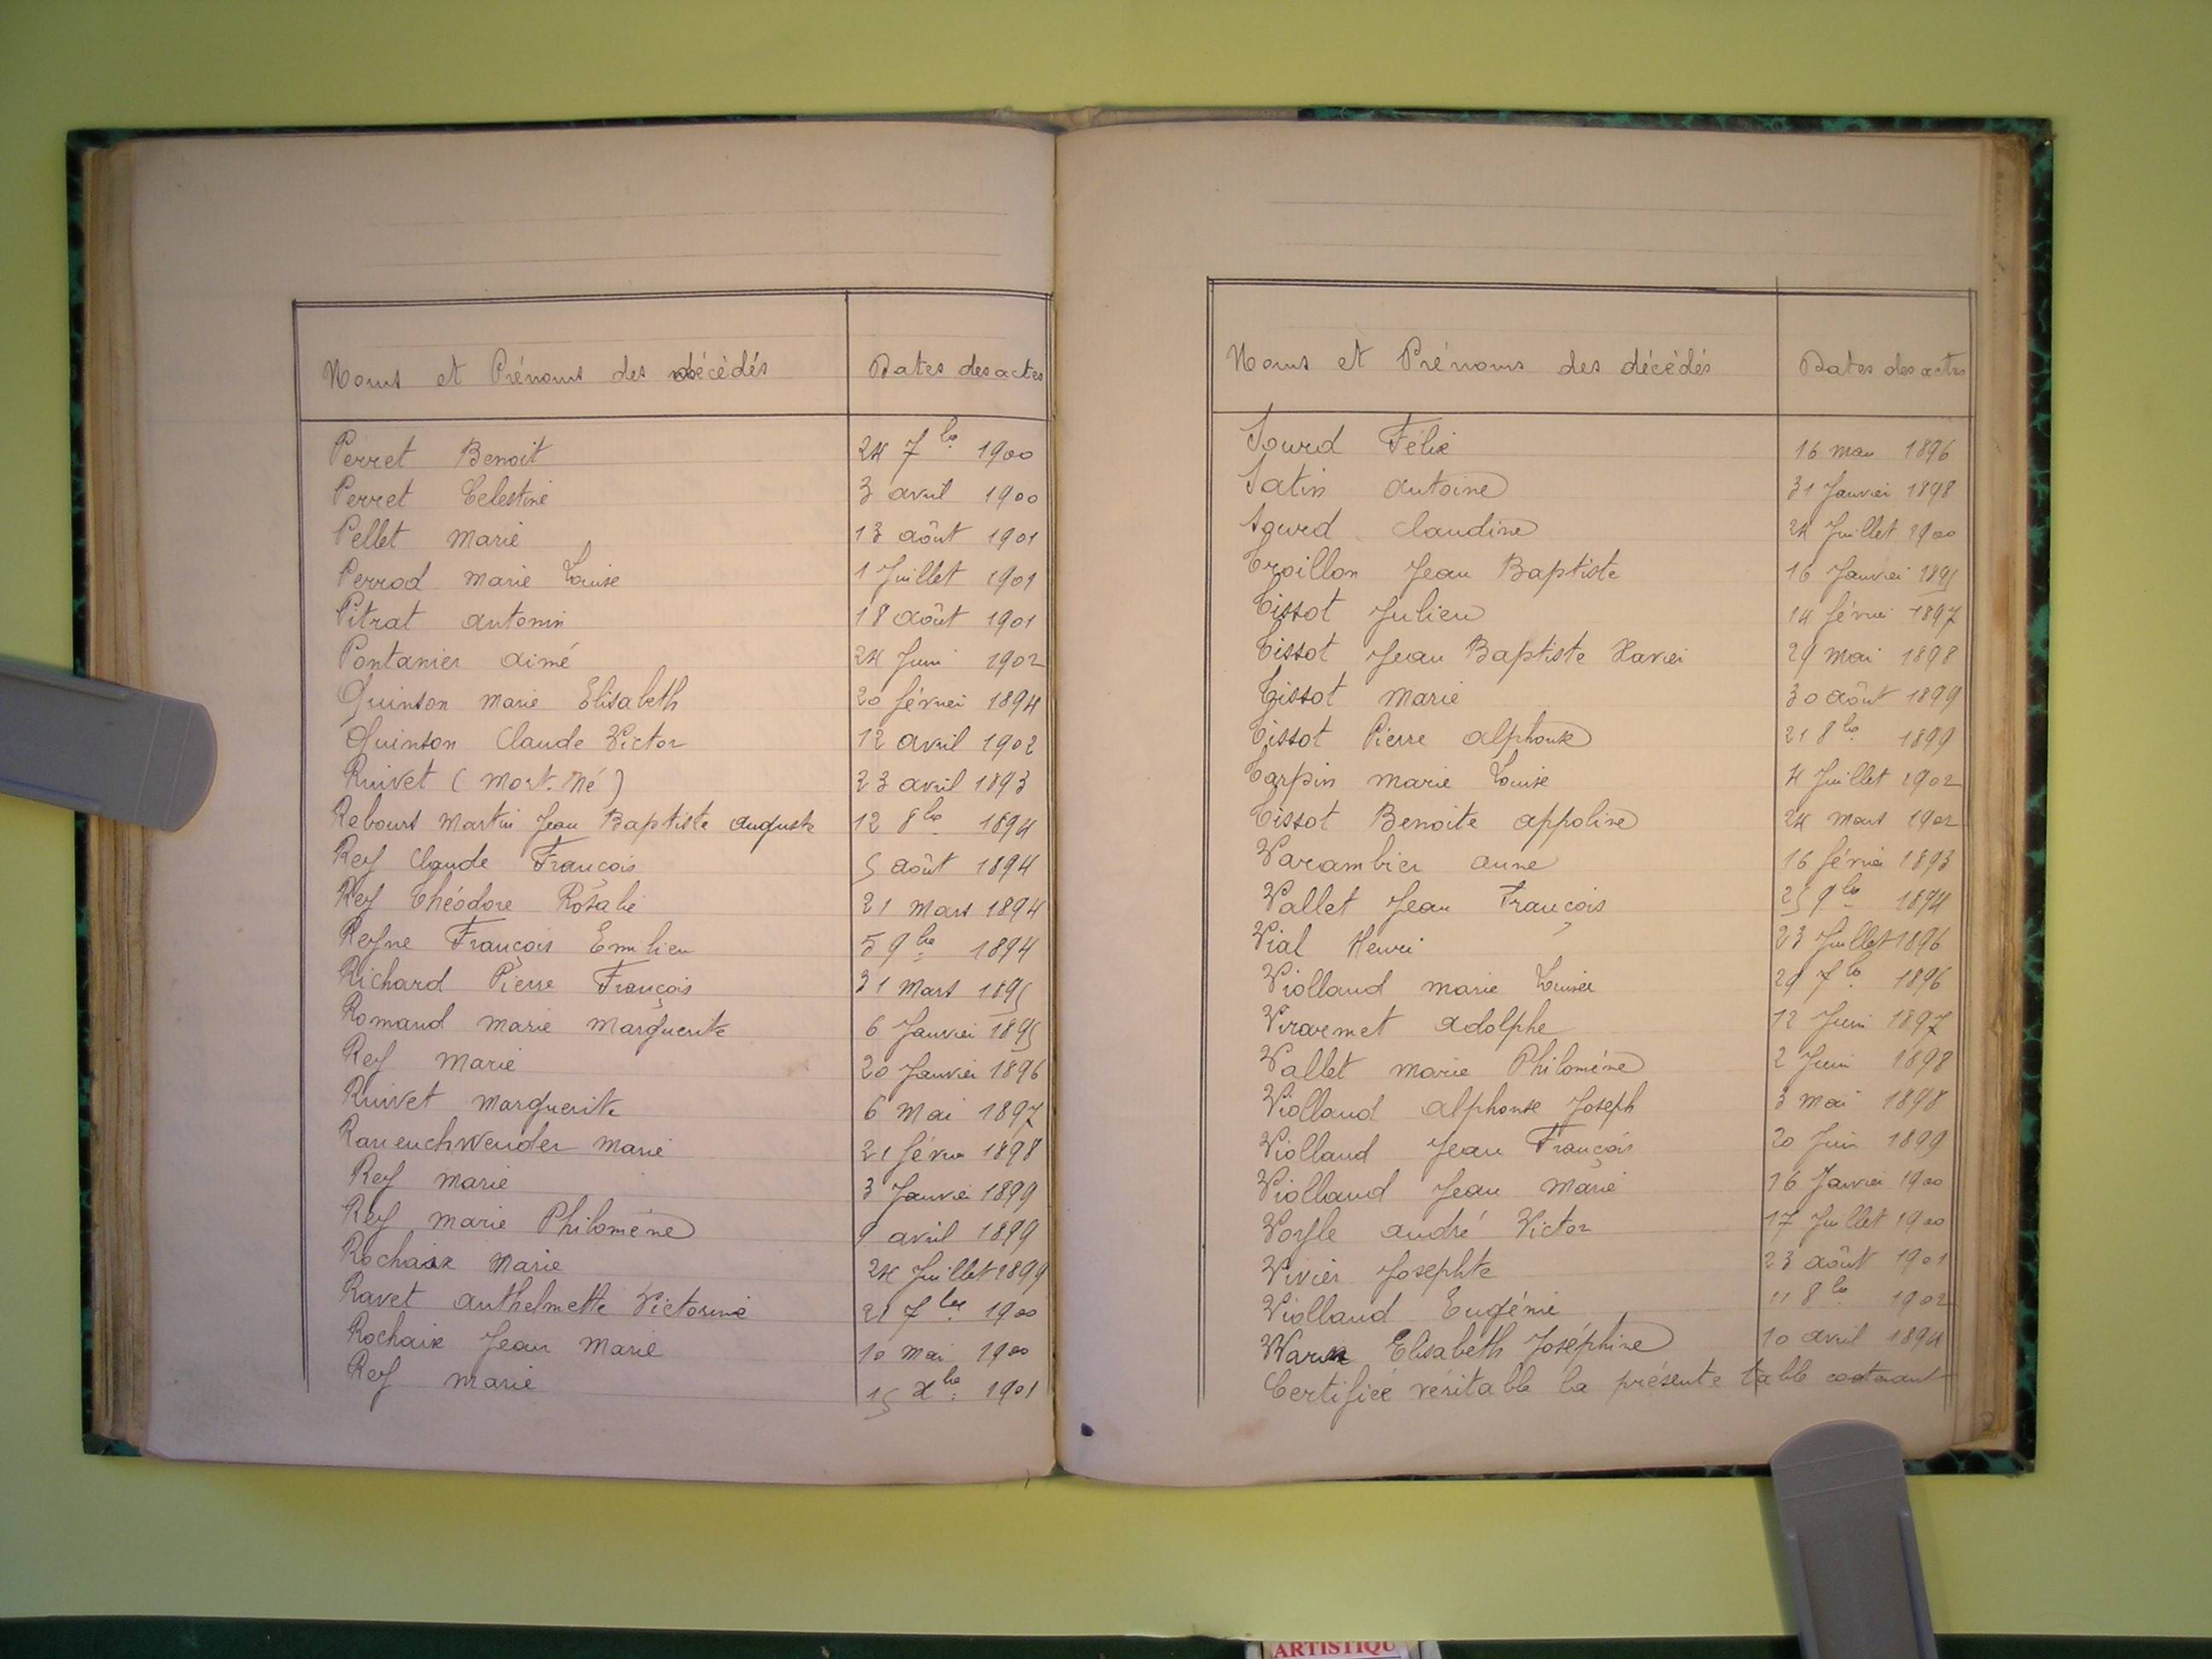 Noms et Prénoms des décédés Dates des actes
Perret Benoit 24 7bre 1900
Perret Celestine 3 avril 1900
Pellet Marie 13 août 1901
Perrod Marie Louise 1 Juillet 1901
Pitrat Antonin 18 août 1901
Pontanier Aimé 24 Juin 1902
Quinson Marie Elisabeth 20 février 1894
Quinson Claude Victor 12 avril 1902
Ruivet (Mort-Né) 23 avril 1893
Rebours Martin Jean Baptiste Auguste 12 8bre 1894
Rey Claude François 5 août 1894
Rey Théodore Rosalie 21 Mars 1894
Reyne François Emilien 5 9bre 1894
Richard Pierre François 31 Mars 1895
Romand Marie Marguerite 6 Janvier 1895
Rey Marie 20 Janvier 1896
Ruivet Marguerite 6 Mai 1897
Marie 21 février 1898
Rey Marie 3 Janvier 1899
Rey Marie Philomène 9 avril 1899
Rochaix Marie 24 Juillet 1899
Ravet Anthelmette Victorine 21 7bre 1900
Rochaix Jean Marie 10 Mai 1900
Rey Marie 15 Xbre 1901
Noms et Prénoms des décédés Dates des actes
Sourd Félix 16 1896
Satin Antoine 31 Janvier 1898
Sourd Claudine 24 Juillet 1900
Troillon Jean Baptiste 16 Janvier 1895
Tissot Julien 14 février 1897
Tissot Jean Baptiste Xavier 29 Mai 1898
Tissot Marie 30 août 1899
Tissot Pierre Alphonse 21 8bre 1899
Tarpin Marie Louise 4 Juillet 1902
Tissot Benoite Appoline 24 Mars 1902
Varambier Anne 16 février 1893
Vallet Jean François 25 9bre 1894
Vial Henri 23 Juillet 1896
Violland Marie Louise 29 7bre 1896
Adolphe 12 Juin 1897
Vallet Marie Philomène 2 Juin 1898
Violland Alphonse Joseph 3 Mai 1898
Violland Jean François 20 Juin 1899
Violland Jean Marie 16 Janvier 1900
Voyle André Victor 17 Juillet 1900
Vivier Josephte 23 août 1901
Violland Eugénie 11 8bre 1902
Elisabeth Joséphine 10 avril 1894
Certifiée véritable la présente table contenant
ARTISTIQU